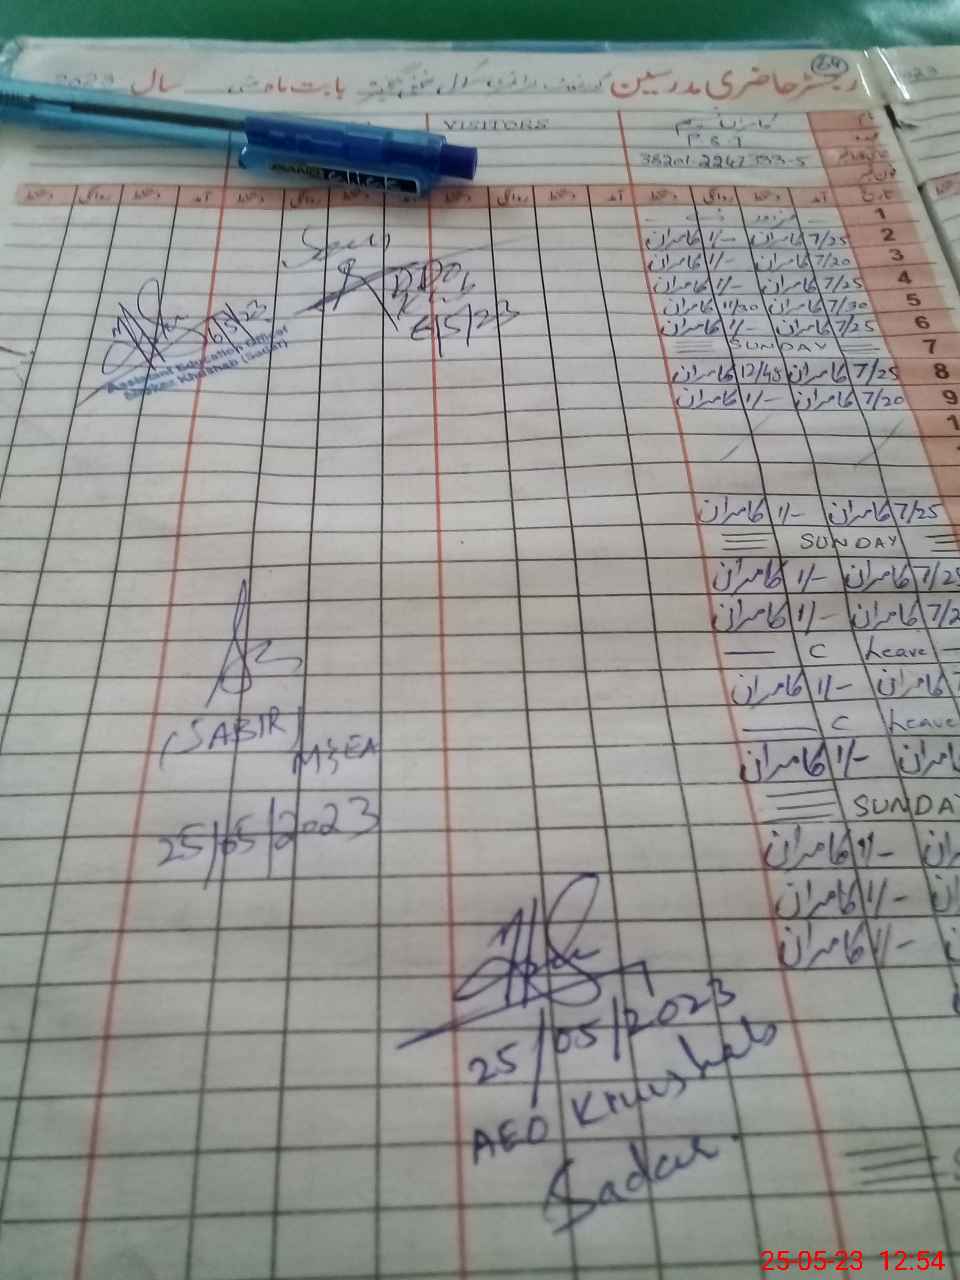 رجسٹر حاضری مدرسین بابت ماہ سال 2023
VISITORS
P.S.T
تاریخ آمد دستخط روانگی دستخط آمد دستخط روانگی دستخط آمد دستخط روانگی دستخط
1
2 7/25 کامران 1/- کامران
3 7/20 کامران 1/- کامران
4 7/25 کامران 1/- کامران
5 7/30 کامران 11/30 کامران
6 7/25 کامران 1/- کامران
7 SUNDAY
8 7/25 کامران 12/45 کامران
9 7/20 کامران 1/- کامران
1
7/25 کامران 1/- کامران
SUNDAY
7/25 کامران 1/- کامران
کامران 1/- کامران
C Leave
کامران 1/- کامران
C Leave
کامران 1/- کامران
SUNDAY
کامران 1/-
کامران 1/-
کامران 1/-
Seen
6/5/23
6/5/23
Assistant Education Officer
Markaz Khushab (Sadar)
(SABIR)
MEA
25/05/2023
25/05/2023
AEO Khushab
Sadar
25-05-23 12.54